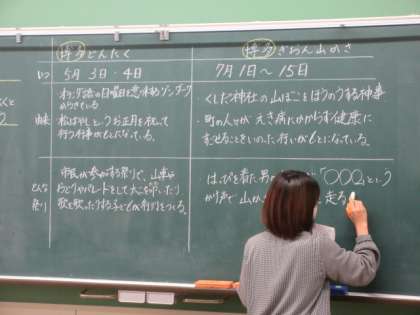 博多どんたく
博多ぎおん山かさ
いつ
5月3日・4日
7月1日〜15日
由来
オランダ語の日曜日を意味するゾンターク
からきている
松ばやしというお正月を祝して
行う行事がもとになっている。
・くしだ神社の山ほこをほうのうする神事
・町の人々が えき病にかからず健康に
すごせることをいのった行いがもとになっている。
どんな
祭り
市民が参加する祭りで、
おどりやパレードをして
歌を歌ったりする子どもが行列をつくる。
・はっぴを着た男の 「○○○」という
かけ声で山か 走る